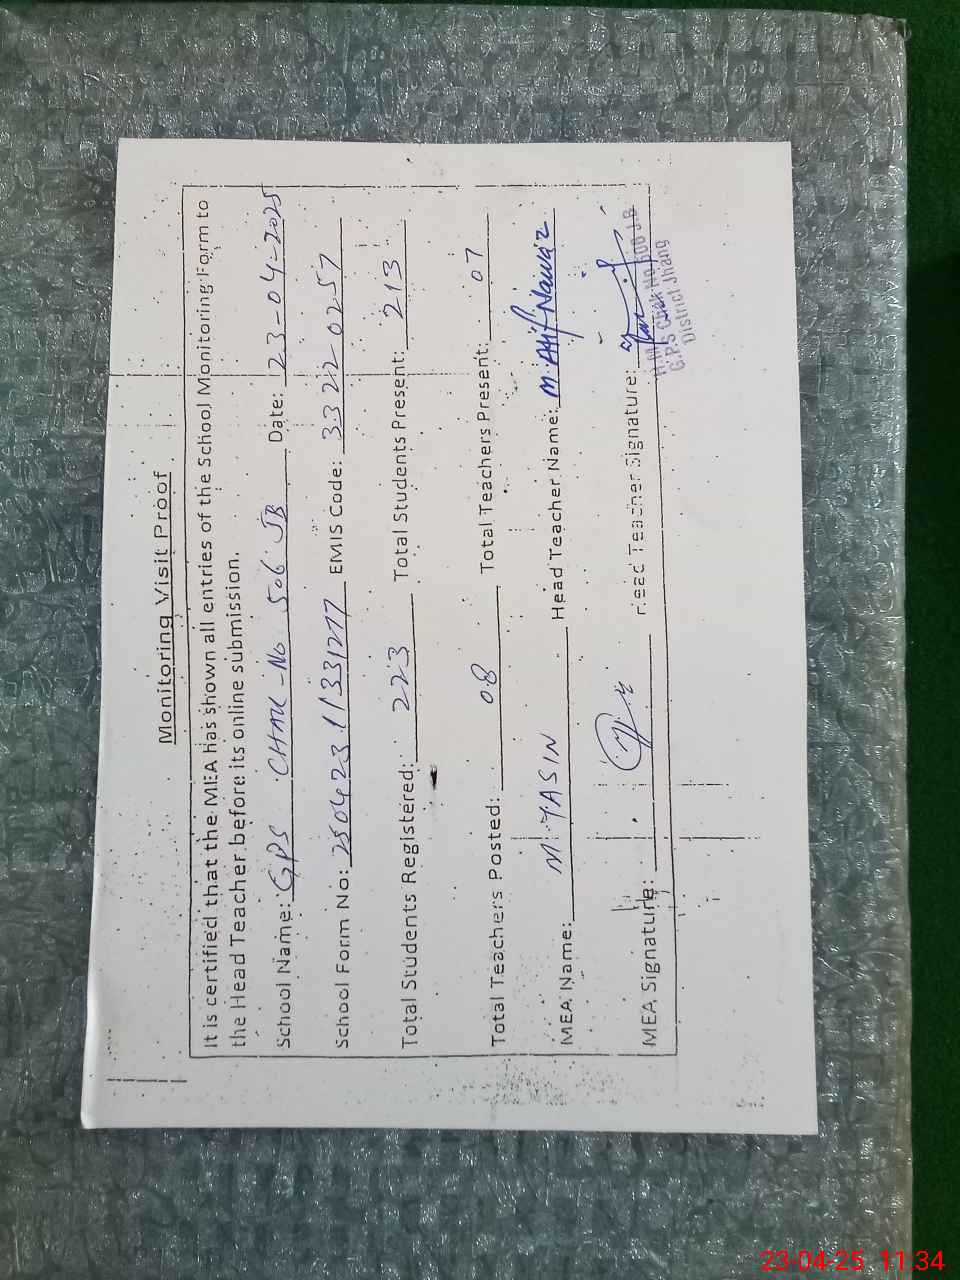 Monitoring Visit Proof
It is certified that the MEA has shown all entries of the School Monitoring Form to
the Head Teacher before its online submission.
School Name: GPS CHAK-No. 506 JB Date: 23-04-2025
School Form No: 250423 1133127 EMIS Code: 3322 0257
Total Students Registered: 223 Total Students Present: 213
Total Teachers Posted: 08 Total Teachers Present: 07
MEA Name: M. YASIN Head Teacher Name: M. Atif Nawaz
MEA Signature: Head Teacher Signature:
G.P.S Chak No 506 J.B
District Jhang
23-04-25 11:34